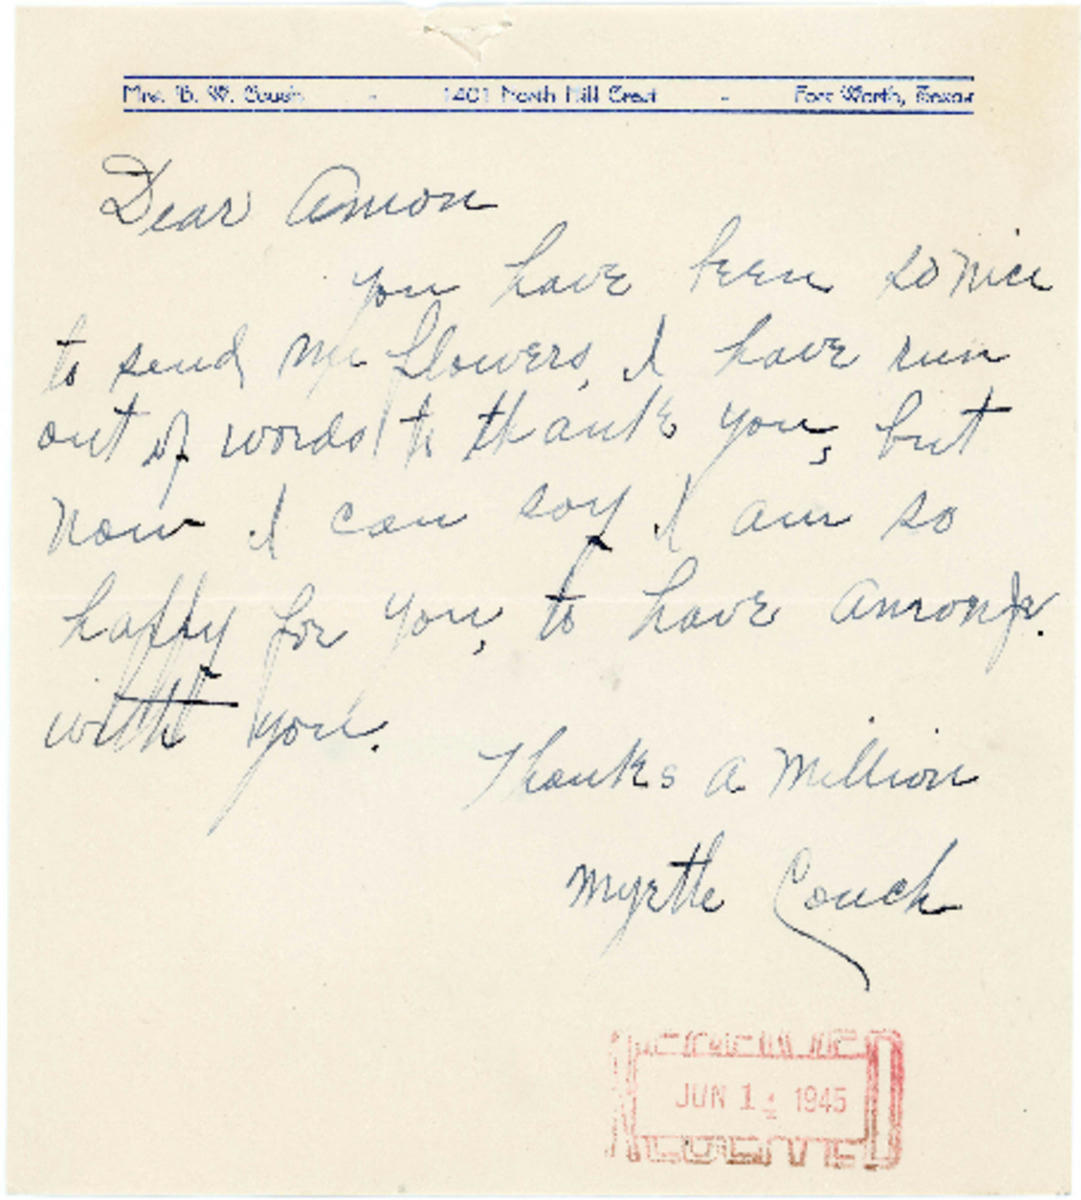 Mrs. B. W. Couch - 1401 North Hill Crest - Fort Worth, Texas
Dear Amon
you have been so nice
to send me flowers, I have run
out of words to thank you, but
now I can say I am so
happy for you, to have Amon Jr.
with you.
Thanks a Million
Myrtle Couch
RECEIVED
JUN 1 1945